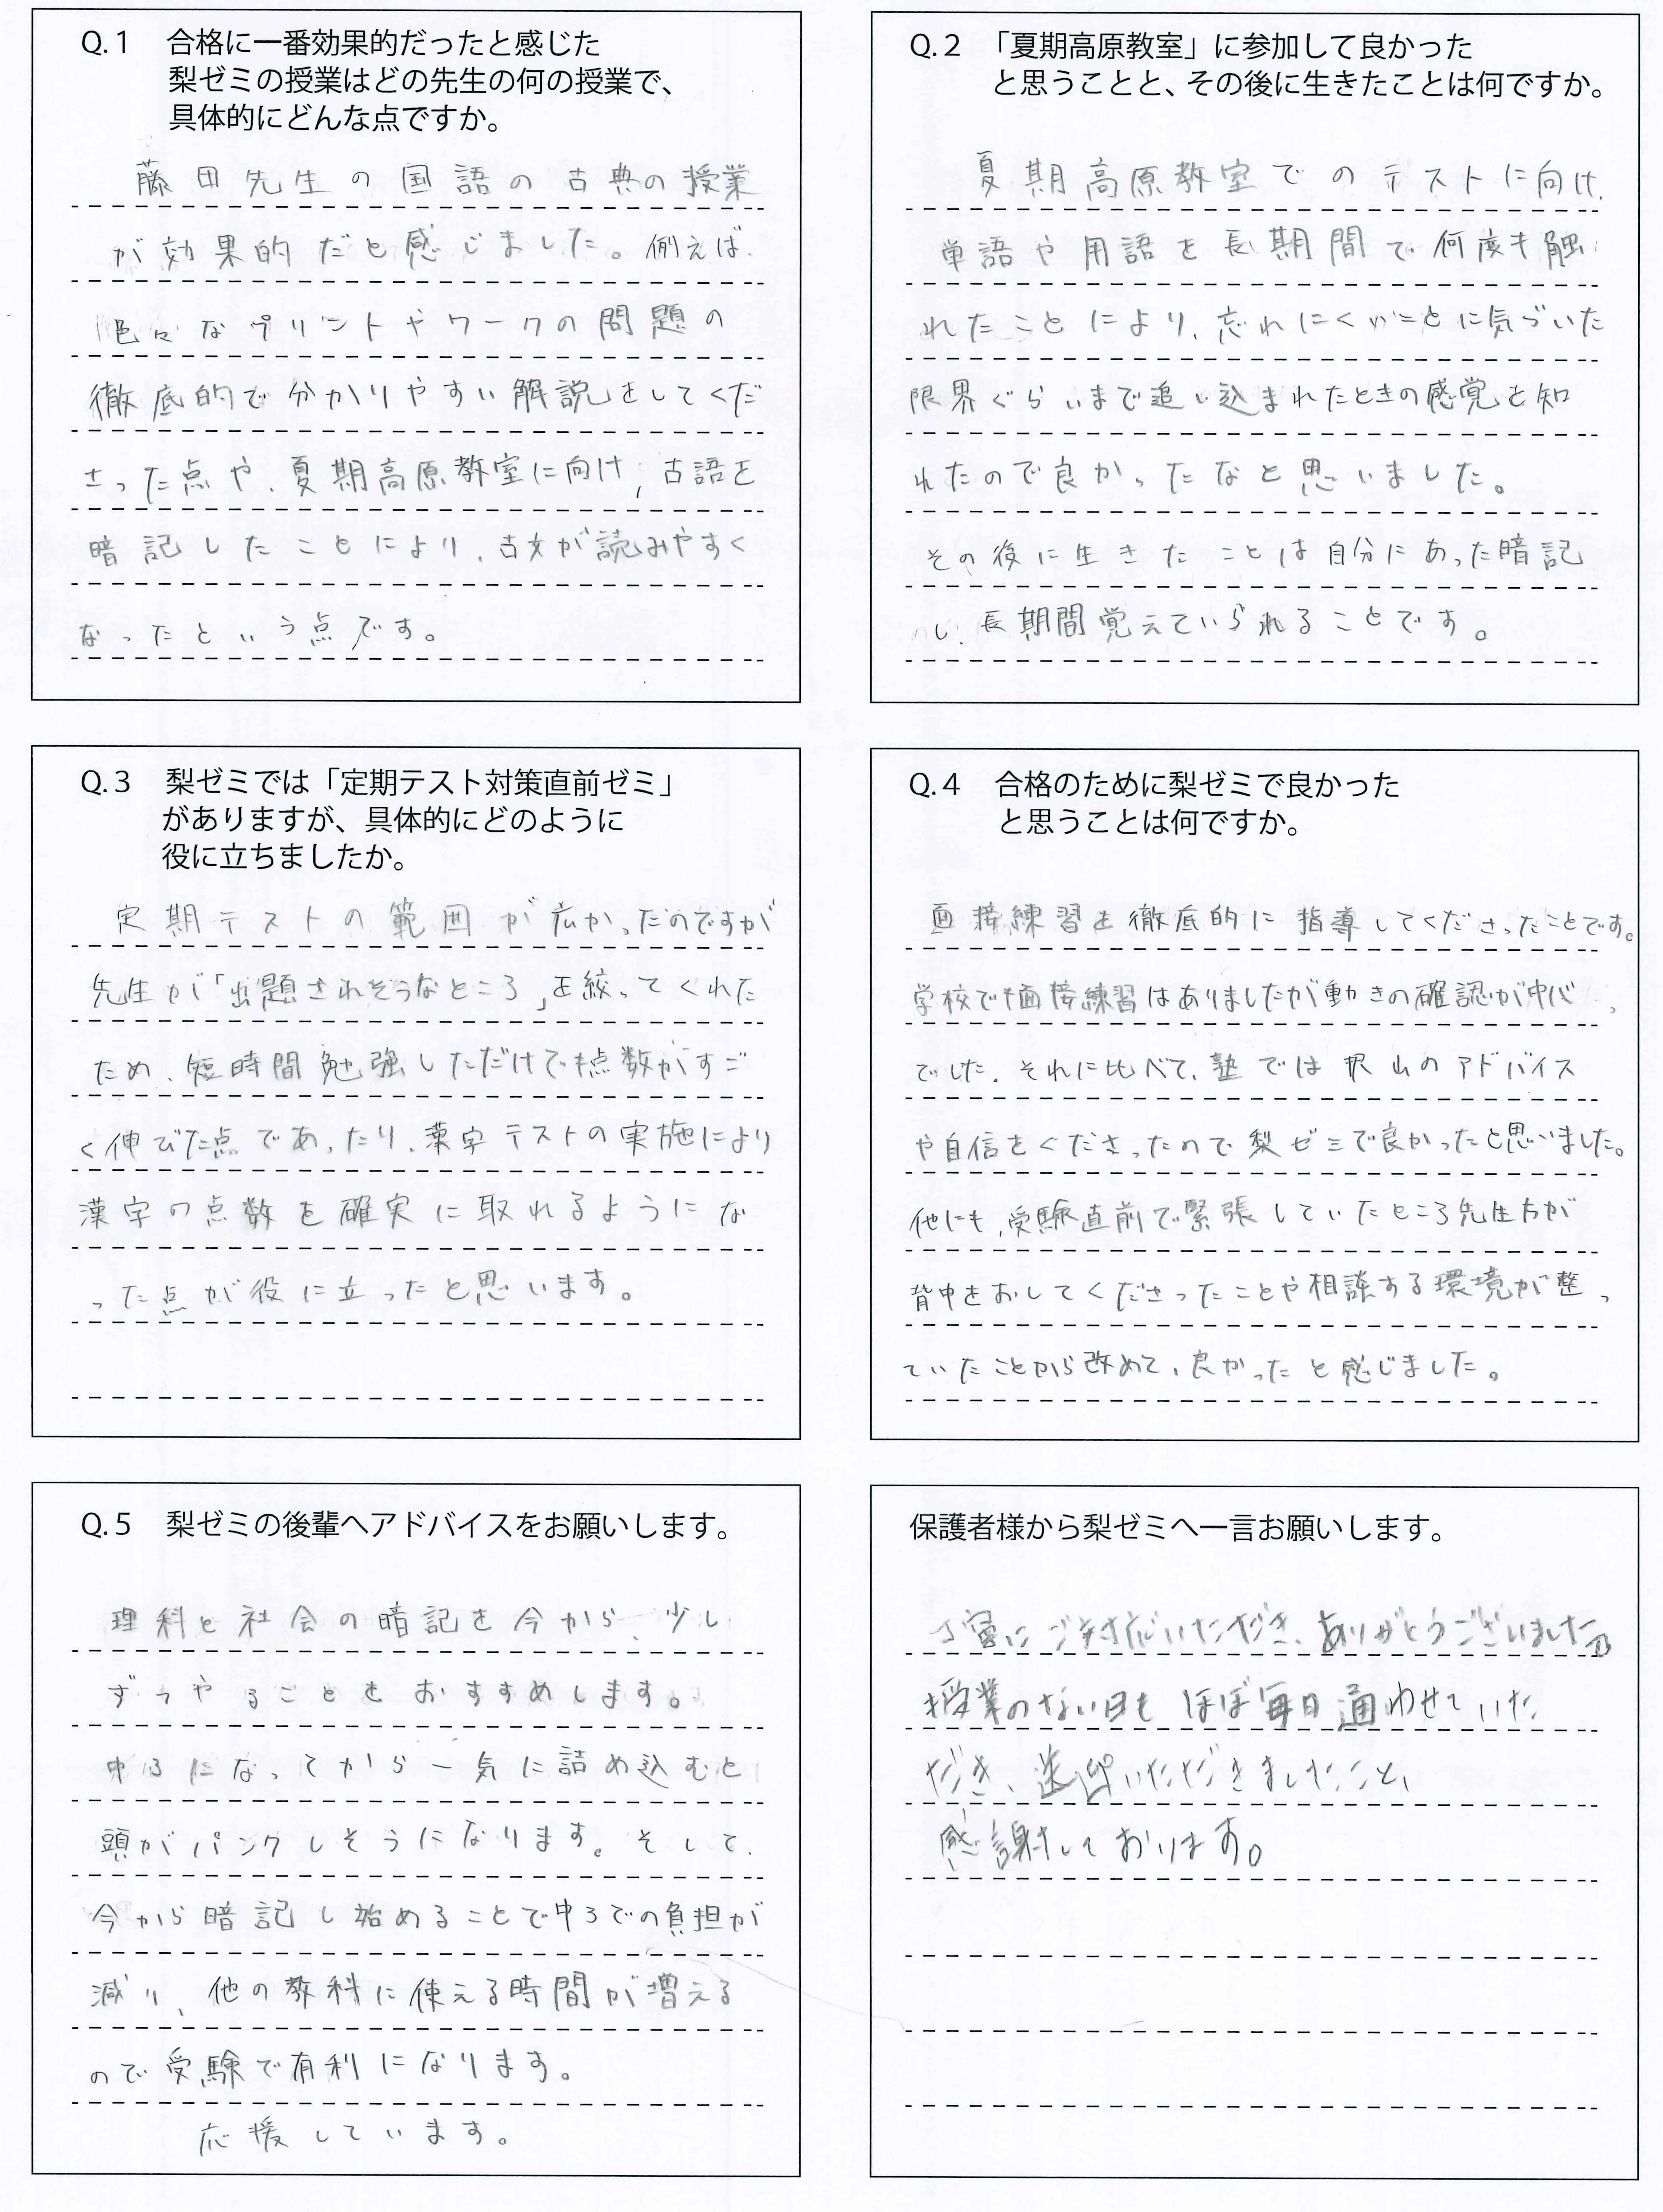 Q.1 合格に一番効果的だったと感じた
梨ゼミの授業はどの先生の何の授業で、
具体的にどんな点ですか。
藤田先生の国語の古典の授業
が効果的だと感じました。例えば、
色々なプリントやワークの問題の
徹底的で分かりやすい解説をしてくだ
さった点や、夏期高原教室に向け、古語を
暗記したことにより、古文が読みやすく
なったという点です。
Q.2 「夏期高原教室」に参加して良かった
と思うことと、その後に生きたことは何ですか。
夏期高原教室でのテストに向け、
単語や用語を長期間で何度も触
れたことにより、忘れにくいことに気づいた
限界ぐらいまで追い込まれたときの感覚を知
れたので良かったなと思いました。
その後に生きたことは自分にあった暗記
し、長期間覚えていられることです。
Q.3 梨ゼミでは「定期テスト対策直前ゼミ」
がありますが、具体的にどのように
役に立ちましたか。
定期テストの範囲が広かったのですが
先生が「出題されそうなところ」を絞ってくれた
ため、短時間勉強しただけでも点数がすご
く伸びた点であったり、漢字テストの実施により
漢字の点数を確実に取れるようにな
った点が役に立ったと思います。
Q.4 合格のために梨ゼミで良かった
と思うことは何ですか。
面接練習を徹底的に指導してくださったことです。
学校でも面接練習はありましたが動きの確認が中心
でした。それに比べて、塾では沢山のアドバイス
や自信をくださったので梨ゼミで良かったと思いました。
他にも、受験直前で緊張していたところ先生方が
背中をおしてくださったことや相談する環境が整っ
ていたことから改めて、良かったと感じました。
Q.5 梨ゼミの後輩へアドバイスをお願いします。
理科と社会の暗記を今から、少し
ずつやることをおすすめします。
中3になってから一気に詰め込むと
頭がパンクしそうになります。そして、
今から暗記し始めることで中3での負担が
減り、他の教科に使える時間が増える
ので受験で有利になります。
応援しています。
保護者様から梨ゼミへ一言お願いします。
丁寧にご対応いただき、ありがとうございました。
授業のない日もほぼ毎日通わせていた
だき、送迎いただきましたこと、
感謝しております。